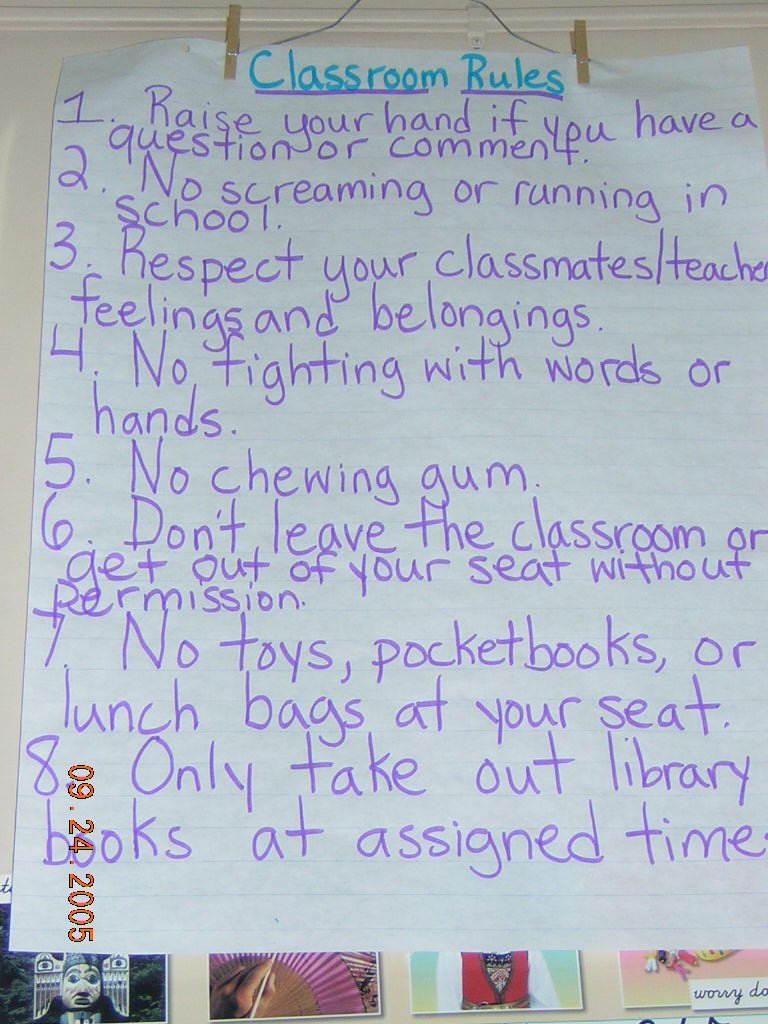 Classroom Rules
1. Raise your hand if you have a
question or comment.
2. No screaming or running in
school.
3. Respect your classmates/teache
feelings and belongings.
4. No fighting with words or
hands.
5. No chewing gum.
6. Don't leave the classroom or
get out of your seat without
permission.
7. No toys, pocketbooks, or
lunch bags at your seat.
8. Only take out library
books at assigned time
09.24.2005
worry do